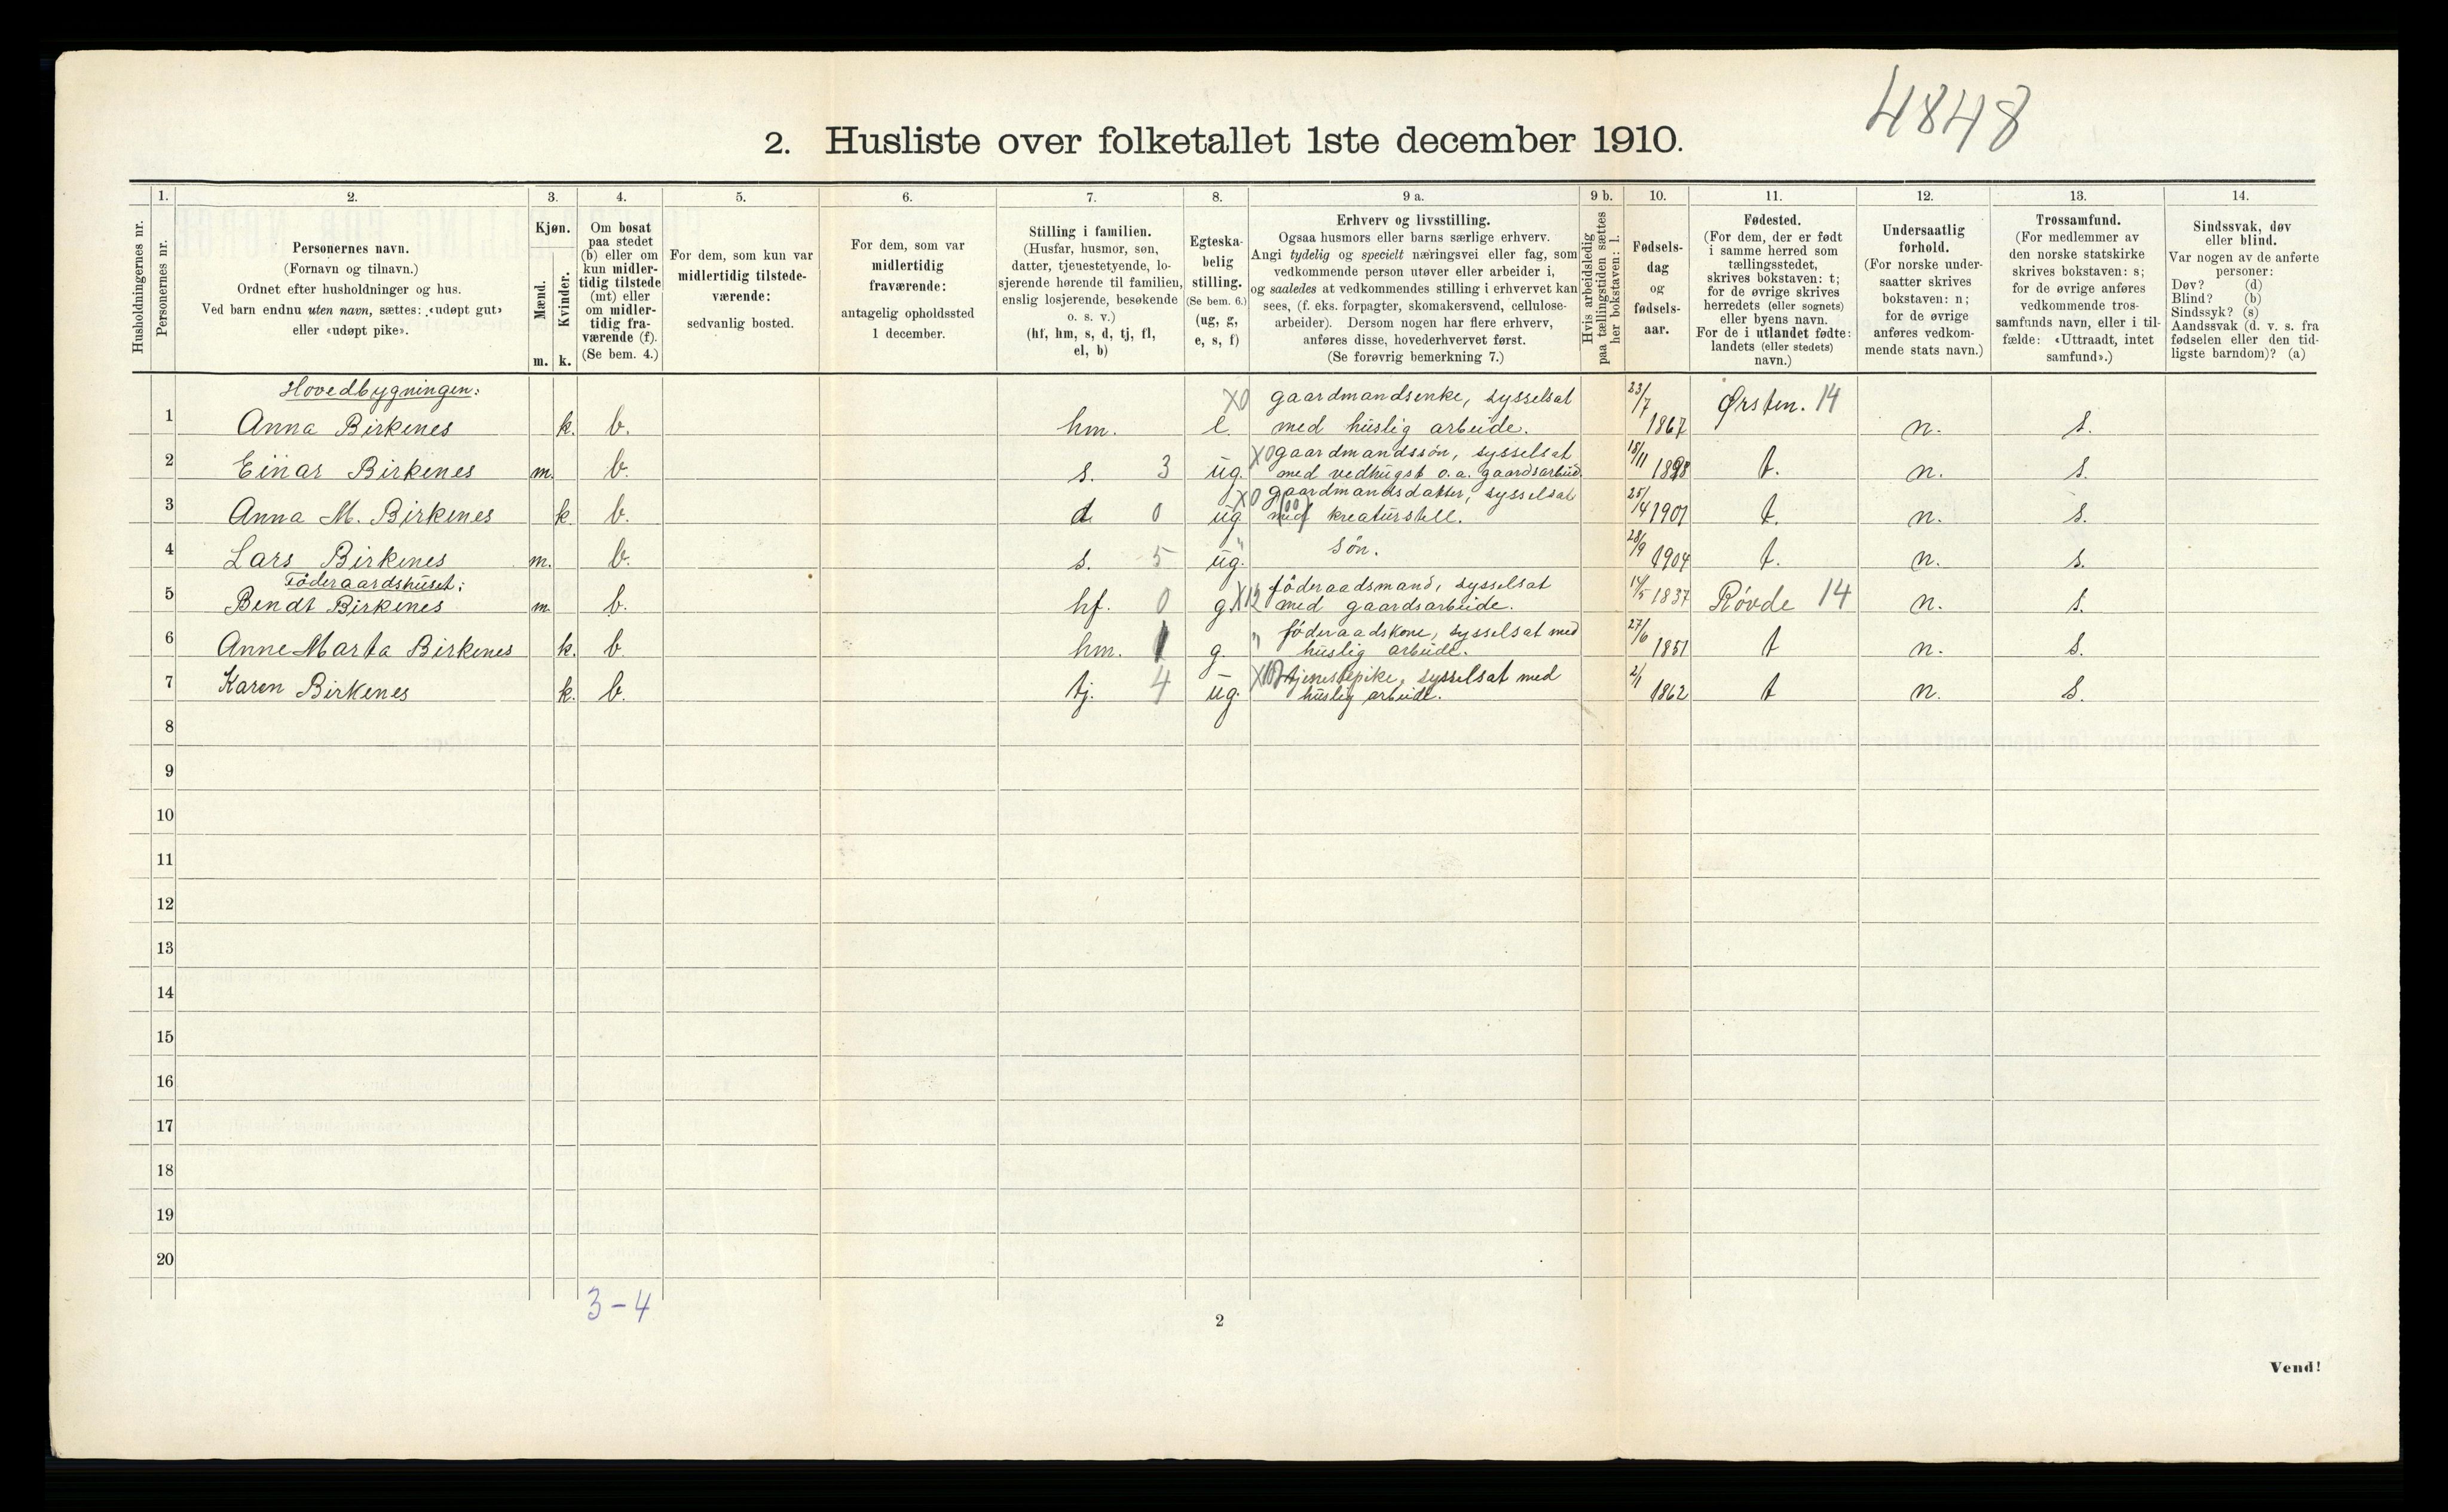 4848
2. Husliste over folketallet 1ste december 1910.
Husholdningernes nr.
1.
Personernes nr.
2.
Personernes navn.
(Fornavn og tilnavn.)
Ordnet efter husholdninger og hus.
Ved barn endnu uten navn, sættes: «udøpt gut»
eller «udøpt pike».
3.
Kjøn.
Mænd.
Kvinder.
m. k.
4.
Om bosat
paa stedet
(b) eller om
kun midler-
tidig tilstede
(mt) eller
om midler-
tidig fra-
værende (f).
(Se bem. 4.)
5.
For dem, som kun var
midlertidig tilstede-
værende:
sedvanlig bosted.
6.
For dem, som var
midlertidig
fraværende:
antagelig opholdssted
1 december.
7.
Stilling i familien.
(Husfar, husmor, søn,
datter, tjenestetyende, lo-
sjerende hørende til familien,
enslig losjerende, besøkende
o. s. v.)
(hf, hm, s, d, tj, fl,
el, b)
8.
Egteska-
belig
stilling.
(Se bem. 6.)
(ug, g,
e, s, f)
9 a.
Erhverv og livsstilling.
Ogsaa husmors eller barns særlige erhverv.
Angi tydelig og specielt næringsvei eller fag, som
vedkommende person utøver eller arbeider i,
og saaledes at vedkommendes stilling i erhvervet kan
sees, (f. eks. forpagter, skomakersvend, cellulose-
arbeider). Dersom nogen har flere erhverv,
anføres disse, hovederhvervet først.
(Se forøvrig bemerkning 7.)
9 b.
Hvis arbeidsledig
paa tællingstiden sættes
her bokstaven: l.
10.
Fødsels-
dag
og
fødsels-
aar.
11.
Fødested.
(For dem, der er født
i samme herred som
tællingsstedet,
skrives bokstaven: t;
for de øvrige skrives
herredets (eller sognets)
eller byens navn.
For de i utlandet fødte:
landets (eller stedets)
navn.)
12.
Undersaatlig
forhold.
(For norske under-
saatter skrives
bokstaven: n;
for de øvrige
anføres vedkom-
mende stats navn.)
13.
Trossamfund.
(For medlemmer av
den norske statskirke
skrives bokstaven: s;
for de øvrige anføres
vedkommende tros-
samfunds navn, eller i til-
fælde: «Uttraadt, intet
samfund».)
14.
Sindssvak, døv
eller blind.
Var nogen av de anførte
personer:
Døv? (d)
Blind? (b)
Sindssyk? (s)
Aandssvak (d. v. s. fra
fødselen eller den tid-
ligste barndom)? (a)
Hovedbygningen:
1 Anna Birkenes k. b. hm. e. X0 gaardmandsenke, sysselsat med huslig arbeide. 23/7 1867 Ørsten. 14 n. s.
2 Einar Birkenes m. b. s. 3 ug. X0 gaardmandssøn, sysselsat med vedhugst o.a. gaardsarbeid. 18/11 1898 t. n. s.
3 Anna M. Birkenes k. b. d. 0 ug. X0 gaardmandsdatter, sysselsat med kreaturstell. 1901 t. n. s.
4 Lars Birkenes m. b. s. 5 ug. " søn. 28/9 1904 t. n. s.
Föderaardshuset:
5 Bendt Birkenes m. b. hf. 0 g. X12 föderaadsmand, sysselsat med gaardsarbeide. 14/5 1837 Røvde 14 n. s.
6 Anne Marta Birkenes k. b hm. 1 g. " föderaadskone, sysselsat med huslig arbeide. 27/6 1851 t n. s.
7 Karen Birkenes k. b. tj. 4 ug. tjenestepike, sysselsat med huslig arbeide. 2/1 1862 t n. s.
8
9
10
11
12
13
14
15
16
17
18
19
20
3-4
2
Vend!